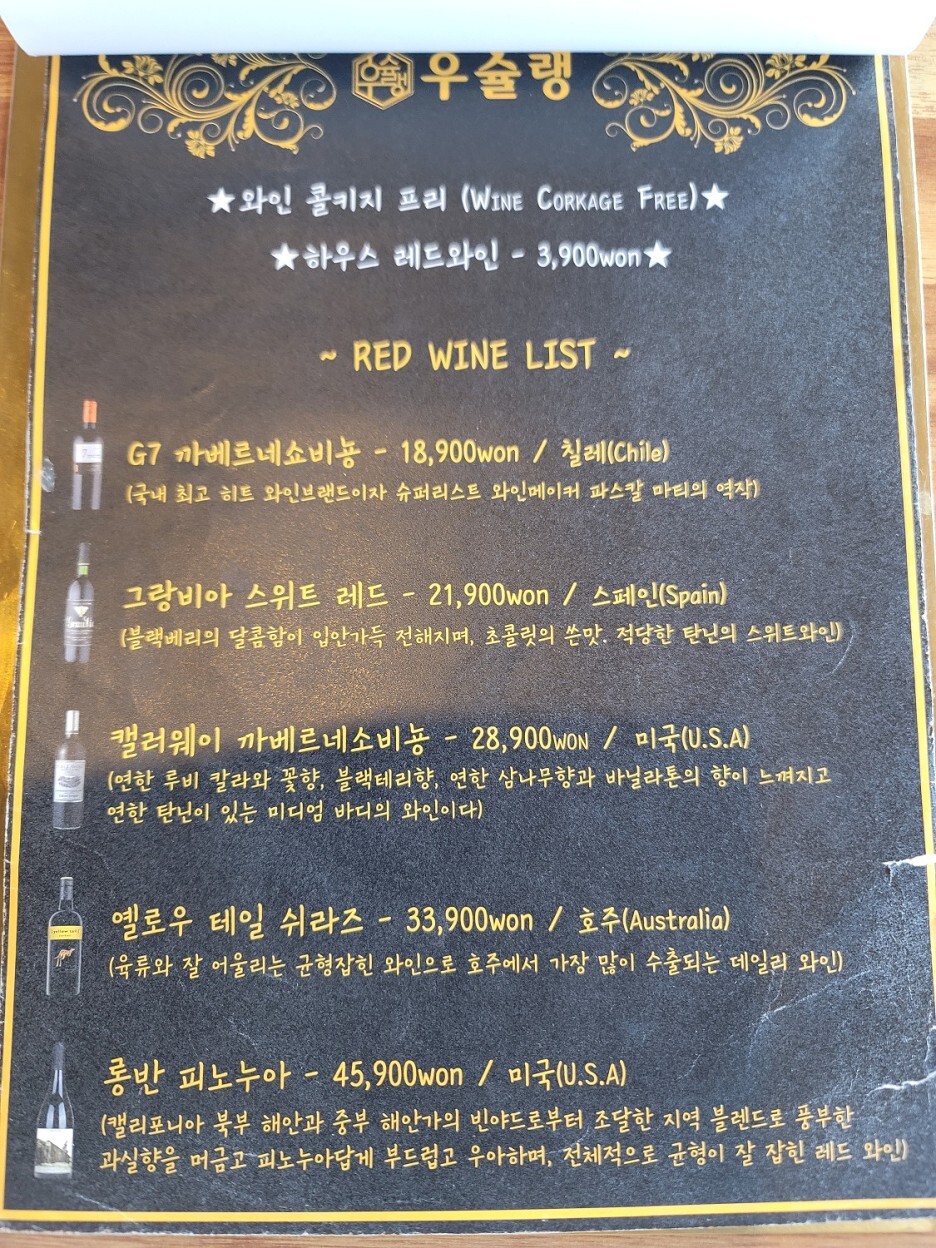 우슐랭 우슐랭
★와인 콜키지 프리 (WINE CORKAGE FREE)★
★하우스 레드와인 - 3,900won★
~ RED WINE LIST ~
G7 까베르네쇼비뇽 - 18,900won / 칠레(Chile)
(국내 최고 히트 와인브랜드이자 슈퍼리스트 와인메이커 파스칼 마티의 역작)
그랑비아 스위트 레드 - 21,900won / 스페인(Spain)
(블랙베리의 달콤함이 입안가득 전해지며, 초콜릿의 쓴맛. 적당한 탄닌의 스위트와인)
캘러웨이 까베르네소비뇽 - 28,900WON / 미국(U.S.A)
(연한 루비 칼라와 꽃향, 블랙테리향, 연한 삼나무향과 바닐라톤의 향이 느껴지고
연한 탄닌이 있는 미디엄 바디의 와인이다)
옐로우 테일 쉬라즈 - 33,900won / 호주(Australia)
(육류와 잘 어울리는 균형잡힌 와인으로 호주에서 가장 많이 수출되는 데일리 와인)
롱반 피노누아 - 45,900won / 미국(U.S.A)
(캘리포니아 북부 해안과 중부 해안가의 빈야드로부터 조달한 지역 블렌드로 풍부한
과실향을 머금고 피노누아답게 부드럽고 우아하며, 전체적으로 균형이 잘 잡힌 레드 와인)
[yellow tail]